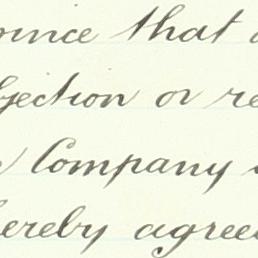 ounce that a
bjection or re
Company
hereby agree